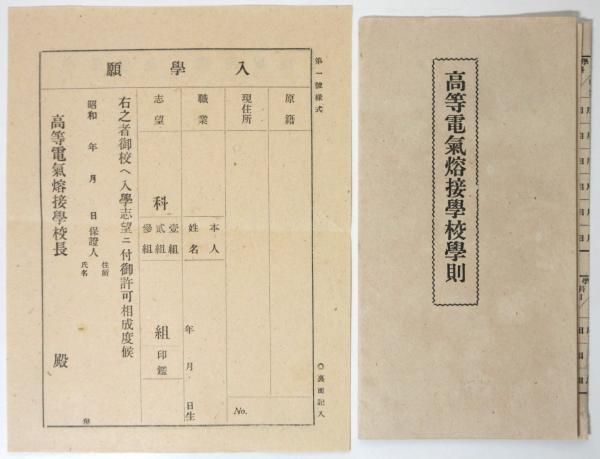 第一號樣式
入學願
原籍
現住所
No.
職業
本人
姓名
年 月 日生
志望 科 壹組 貳組 參組 組 印鑑
右之者御校ヘ入學志望ニ付御許可相成度候
昭和 年 月 日
保證人
住所
氏名
高等電氣熔接學校長 殿
◎裏面記入
高等電氣熔接學校學則